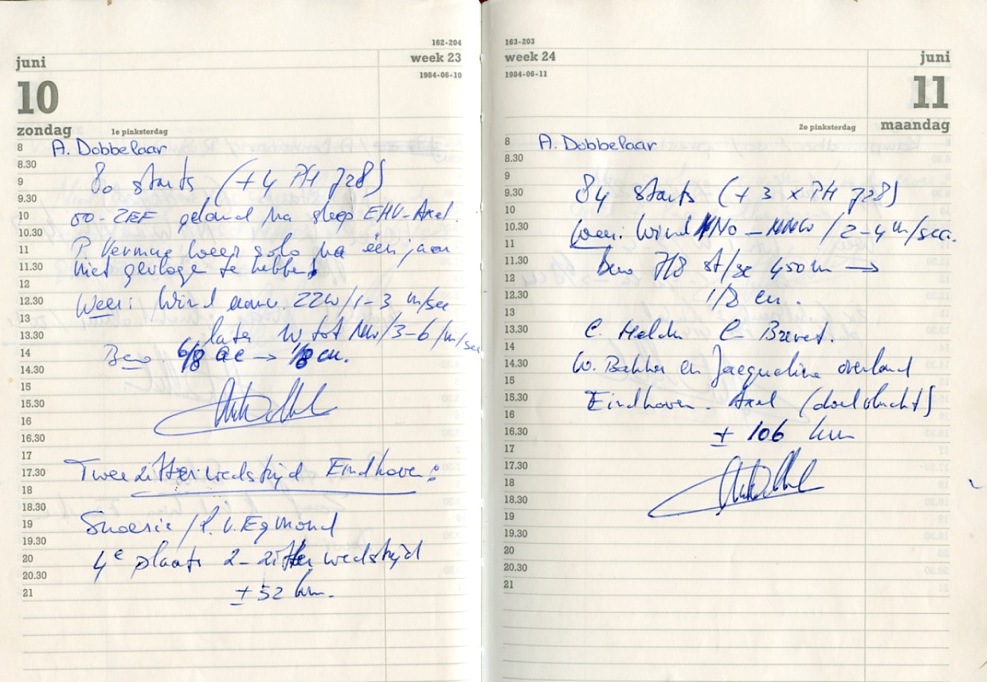 162-204
juni
week 23
1984-06-10
10
zondag
1e pinksterdag
8
A. Dobbelaar
8.30
9
80 starts (+4 PH 728)
9.30
10
OO-ZEF geland na sleep EHV-Axel.
10.30
11
P. Vermue weer solo na één jaar
11.30
niet gevloge te hebbe!
12
12.30
Weer: Wind aanv. ZZW/1-3 m/sec
13
later W tot NW/3-6/m/sec
13.30
14
Bew 6/8 ac → 1/8 cu.
14.30
15
15.30
16
16.30
17
17.30
Tweezitterwedstrijd Eindhoven:
18
18.30
19
Snoerie/P. v. Egmond
19.30
20
4e plaats 2-zitter wedstrijd
20.30
21
± 52 km.
163-203
week 24
juni
1984-06-11
11
2e pinksterdag
maandag
8
A. Dobbelaar
8.30
9
9.30
84 starts (+ 3 x PH 728)
10
10.30
Weer: Wind NNO - NNW/2-4 m/sec.
11
11.30
bew 7/8 st/sc 450m →
12
12.30
1/8 cu.
13
13.30
C. Brevet.
14
14.30
W. Bakker en Jacqueline overland
15
15.30
Eindhoven - Axel (doelvlucht)
16
16.30
± 106 km
17
17.30
18
18.30
19
19.30
20
20.30
21